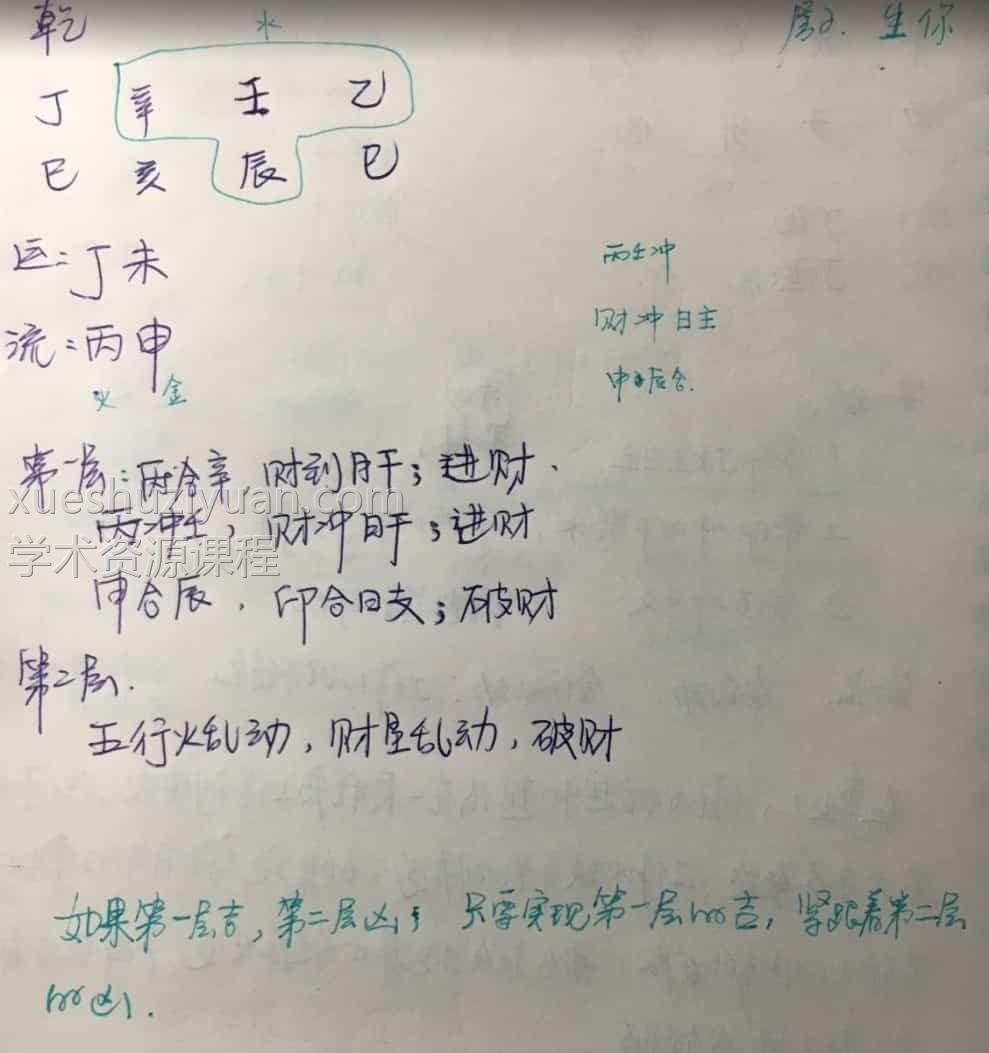 乾
水
生你
丁 辛 壬 乙
巳 亥 辰 巳
运：丁未
流：丙申
火 金
丙壬冲
财冲日主
申辰合.
第一层：丙合辛，财到月干；进财.
xueshuziyuan.com
丙冲壬，财冲日干；进财
学术资源课程
申合辰，印合日支；破财
第二层.
五行火乱动，财星乱动，破财
如果第一层吉，第二层凶； 只要实现第一层的吉，紧跟着第二层
的凶.